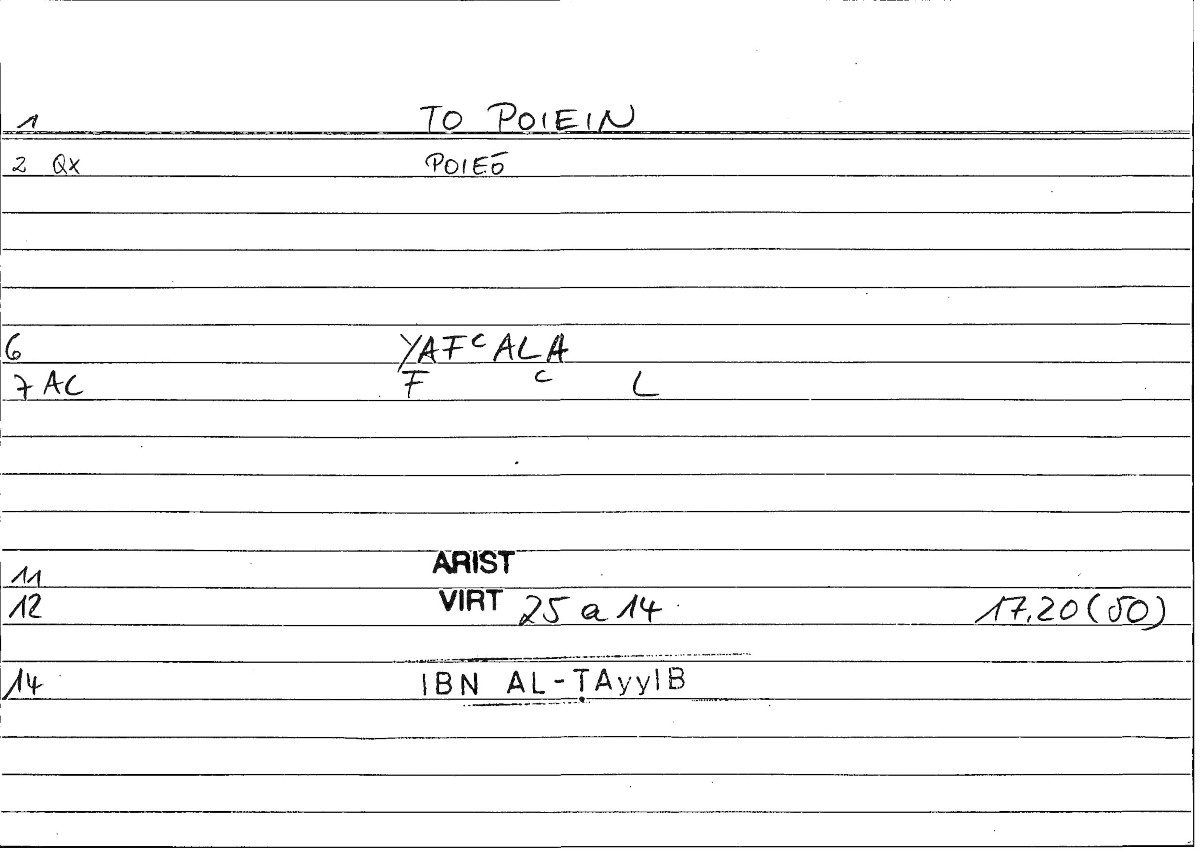 1 TO POIEIN
2 QX POIEŌ
6 YAFᶜALA
7 AC F ᶜ L
11 ARIST
12 VIRT 25 a 14 17,20 (50)
14 IBN AL-ṬAyyIB